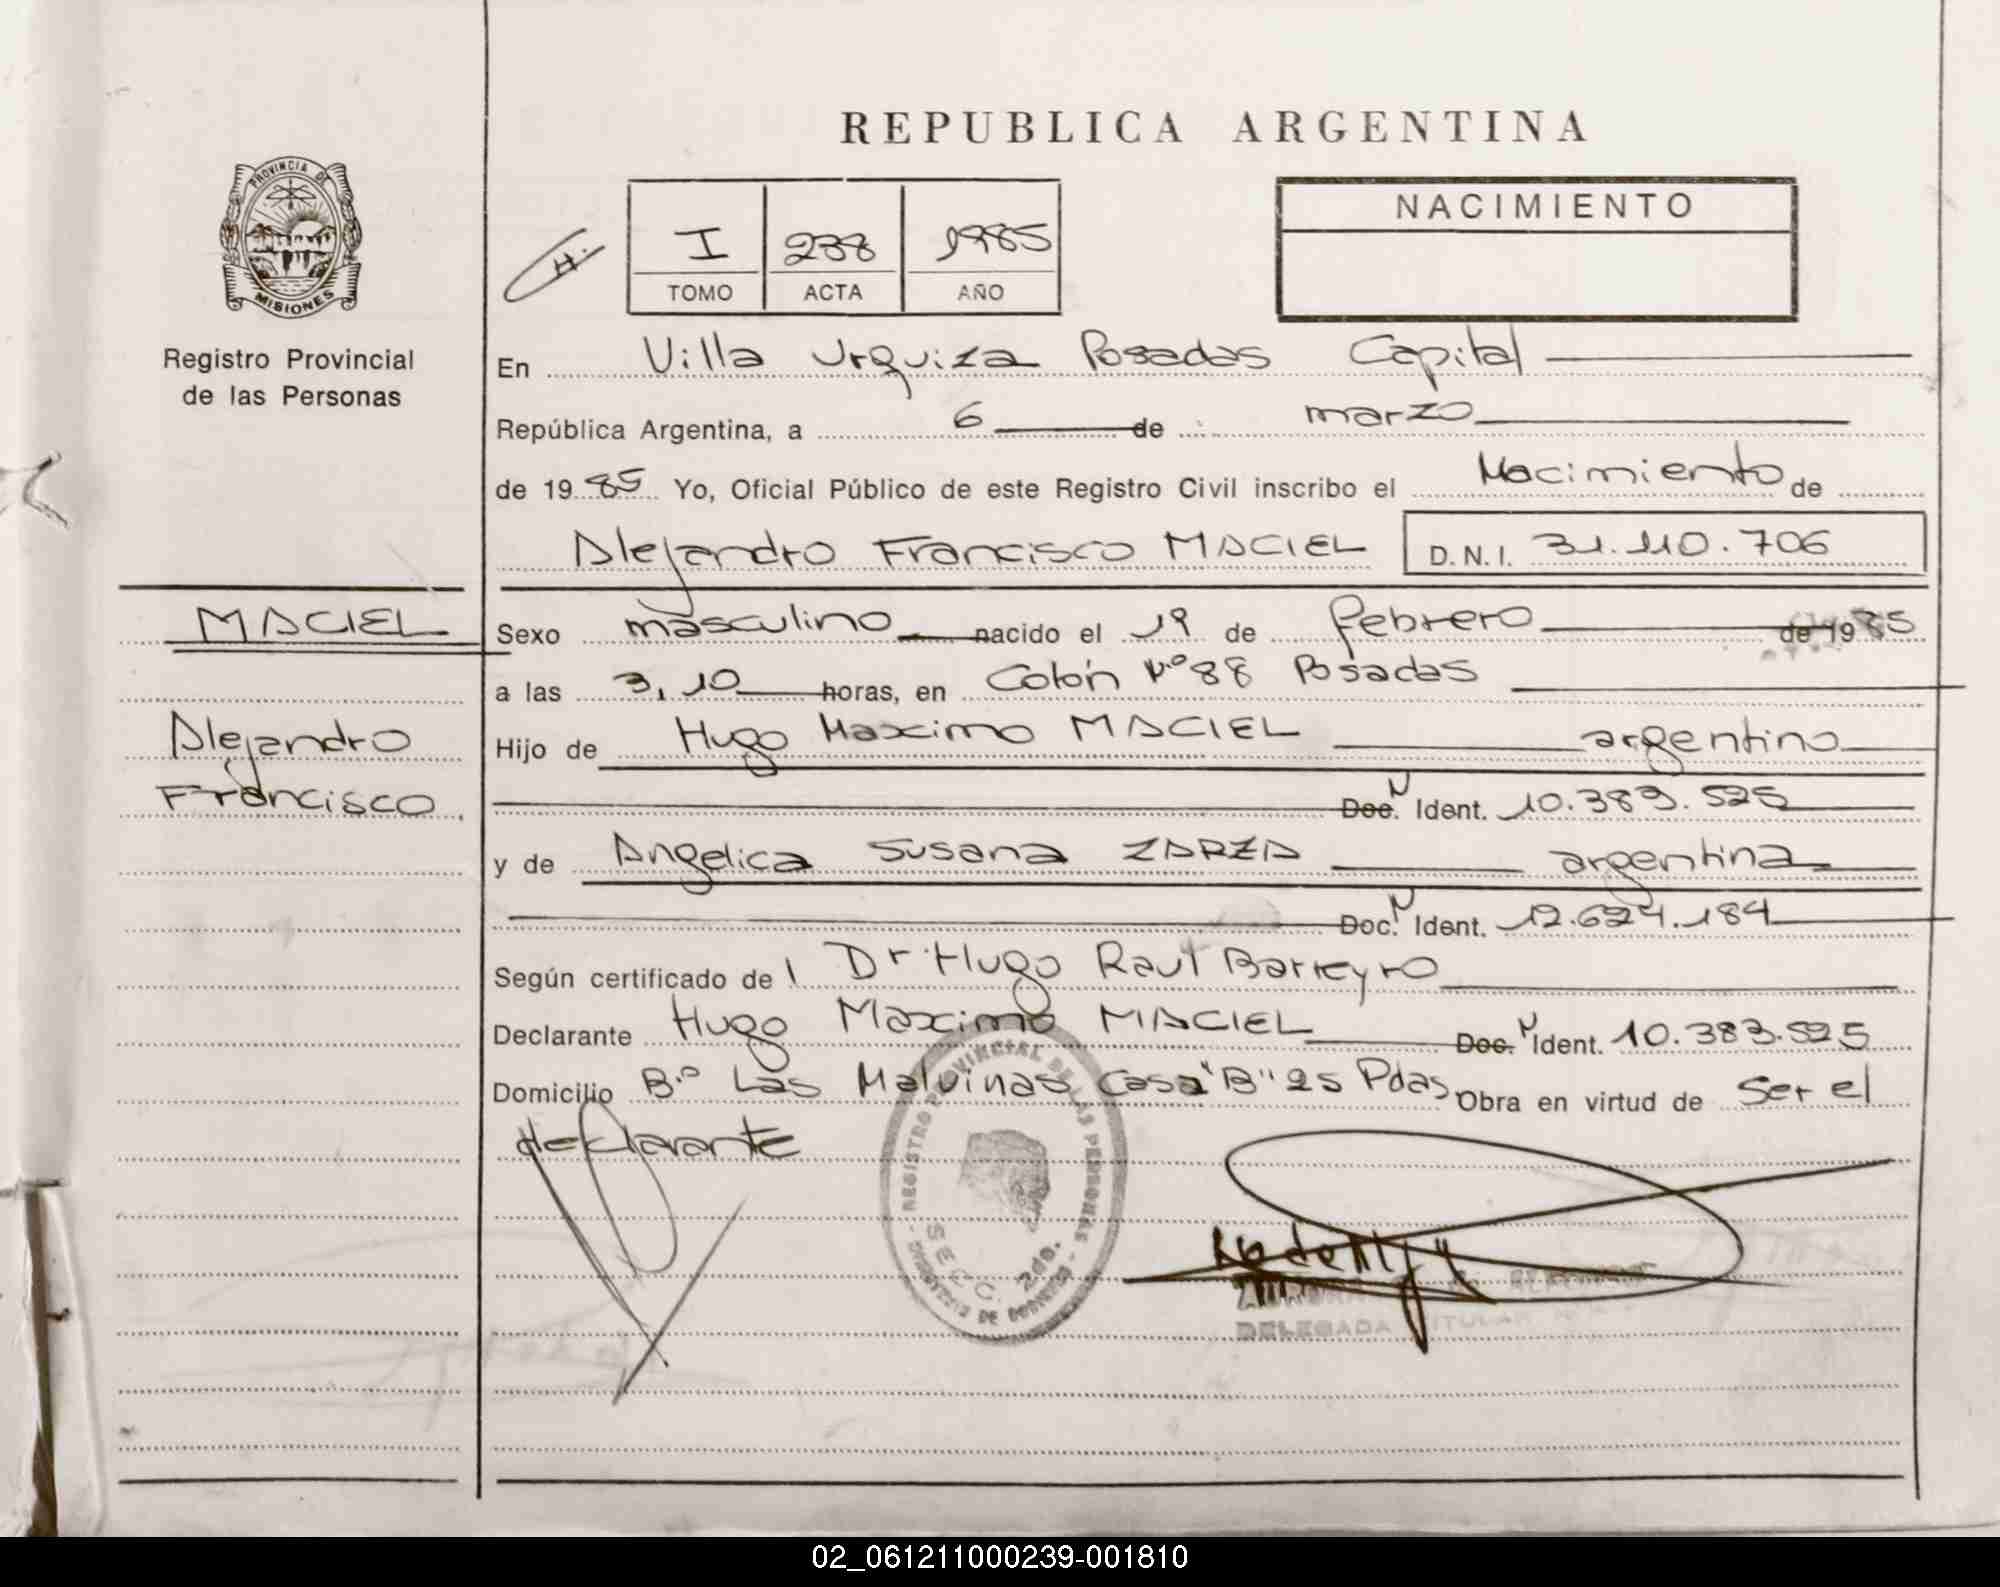 REPUBLICA ARGENTINA
PROVINCIA DE
MISIONES
Registro Provincial
de las Personas
H.
I 238 1985
TOMO ACTA AÑO
NACIMIENTO
En Villa Urquiza Posadas Capital
República Argentina, a 6 de marzo
de 1985 Yo, Oficial Público de este Registro Civil inscribo el Nacimiento de
Alejandro Francisco MACIEL D.N.I. 31.110.706
MACIEL
Alejandro
Francisco
Sexo masculino nacido el 19 de febrero de 1985
a las 3,10 horas, en Colón Nº 88 Posadas
Hijo de Hugo Maximo MACIEL argentino
Doc. N Ident. 10.383.525
y de Angelica Susana ZARZA argentina
Doc. N Ident. 12.624.184
Según certificado del Dr. Hugo Raul Barreyro
Declarante Hugo Maximo MACIEL Doc. N Ident. 10.383.525
Domicilio Bº Las Malvinas Casa "B" 25 Pdas. Obra en virtud de ser el
declarante
REGISTRO PROVINCIAL DE LAS PERSONAS
SECC. 2da.
DELEGADA TITULAR
02_061211000239-001810